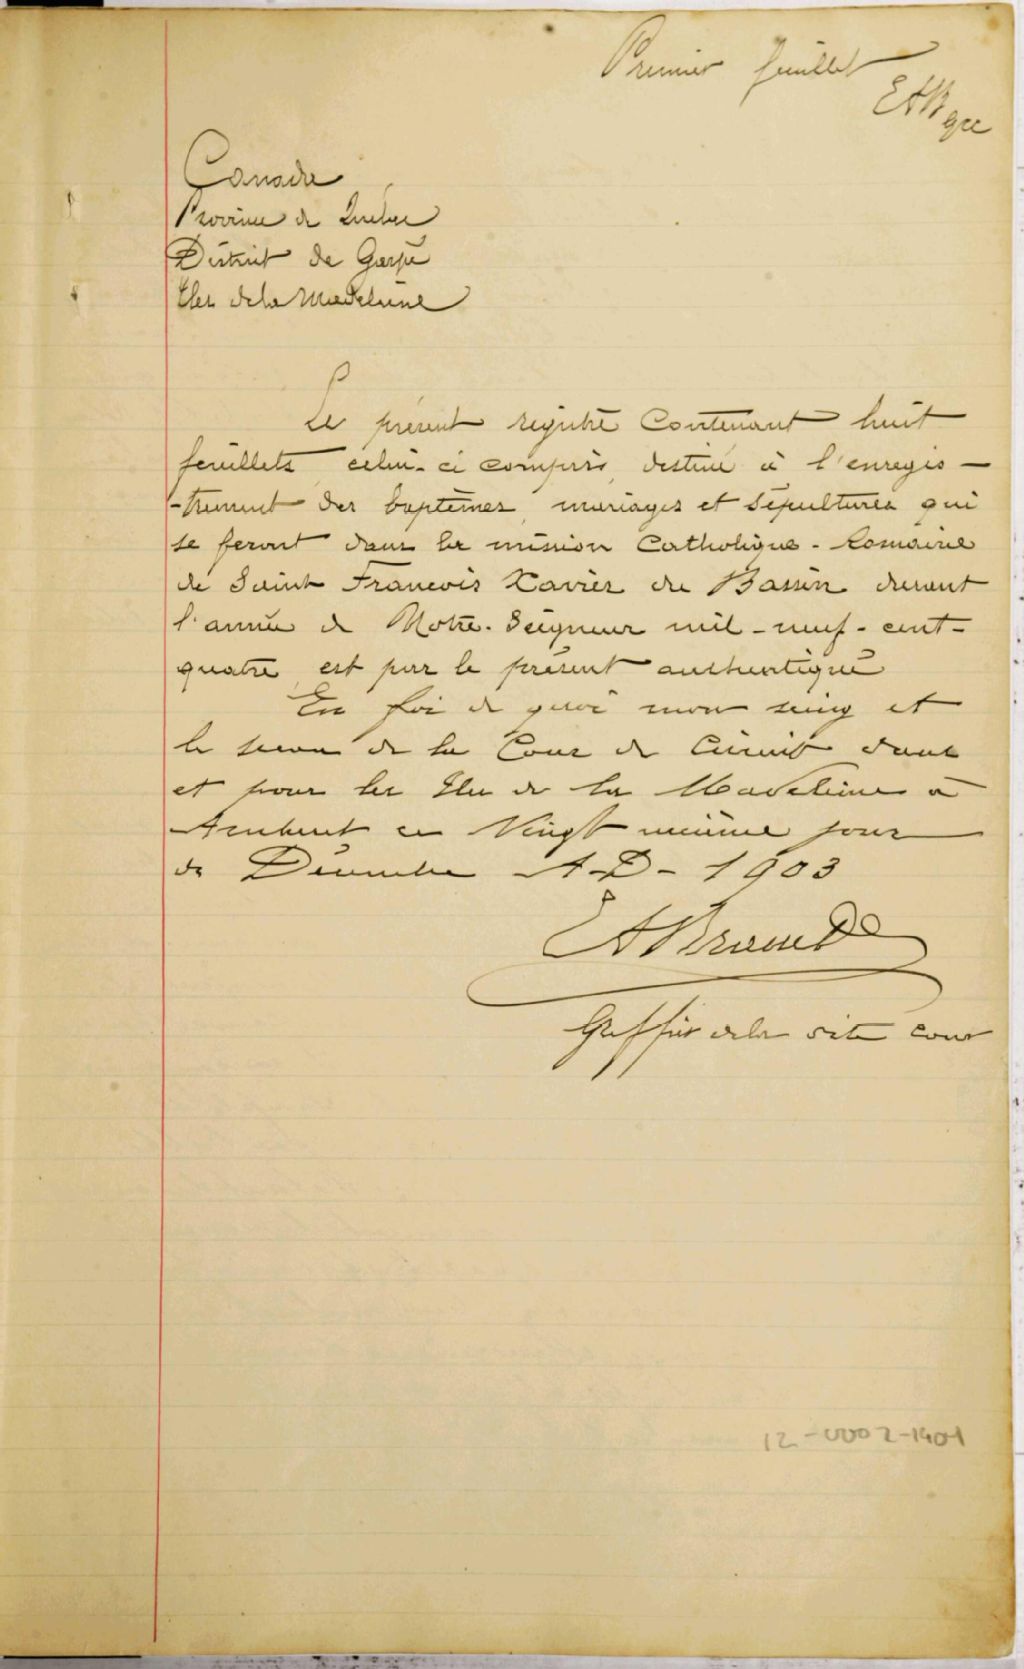 Premier feuillet
EAB gcc
Canada
Province de Québec
District de Gaspé
Iles de la Madeleine
Le présent registre contenant huit
feuillets celui-ci compris, destiné à l'enregis-
-trement des baptêmes, mariages et sépultures qui
se feront dans la mission Catholique-Romaine
de Saint François Xavier du Bassin durant
l'année de Notre-Seigneur mil-neuf-cent-
quatre, est par le présent authentiqué
En foi de quoi mon seing et
le sceau de la Cour de Circuit dans
et pour les Iles de la Madeleine à
Amherst ce Vingt unième jour
de Décembre A-D-1903
EA Brasset
Greffier de la dite cour
12-0002-1904